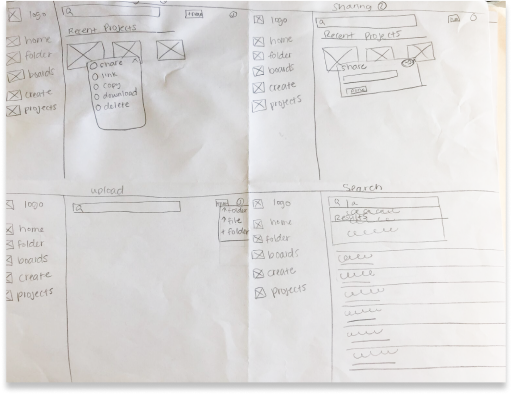 logo
home
folder
boards
create
projects
Recent Projects
share
link
copy
download
delete
Sharing
logo
home
folder
boards
create
projects
Recent Projects
Share
upload
logo
home
folder
boards
create
projects
+ file
+ folder
Search
logo
home
folder
boards
create
projects
Results